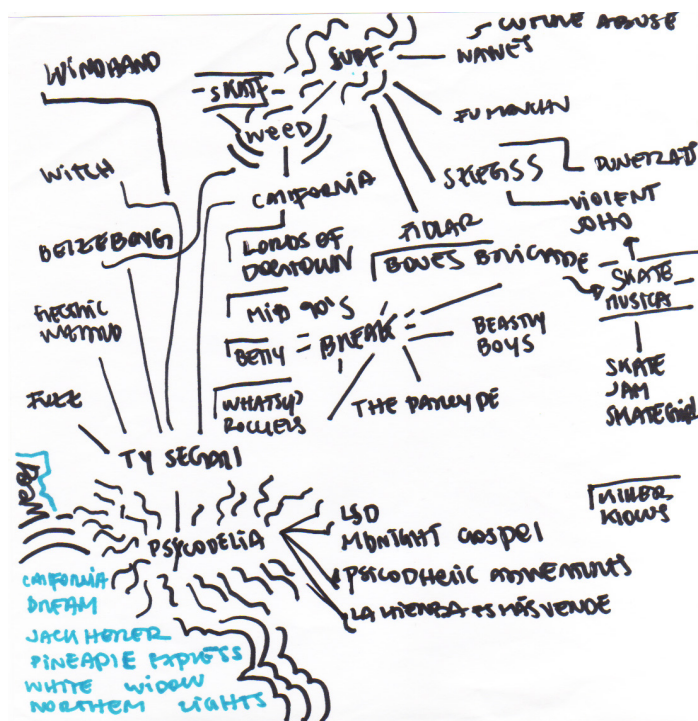 CULTURE ABUSE
SURF
WAVVES
WINDHAND
SKATE
WEED
FU MANCHU
WITCH
CALIFORNIA
SKEGSS
DUNE RATS
VIOLENT
SOHO
BELZEBONG
LORDS OF
DOGTOWN
FIDLAR
BONES BRIGADE
SKATE
MUSICA
ELECTRIC
WIZARD
MID 90'S
BETTY
BREAK
BEASTY
BOYS
SKATE
JAM
FUZZ
WHATSUP
ROCKERS
THE PARCYDE
TY SEGALL
WEED
LSD
MIDNIGHT GOSPEL
PSYCODELIA
PSICODHELIC ADVENTURES
LA HIERBA ES MÁS VERDE
CALIFORNIA
DREAM
JACK HERER
PINEAPLE EXPRESS
WHITE WIDOW
NORTHERN LIGHTS